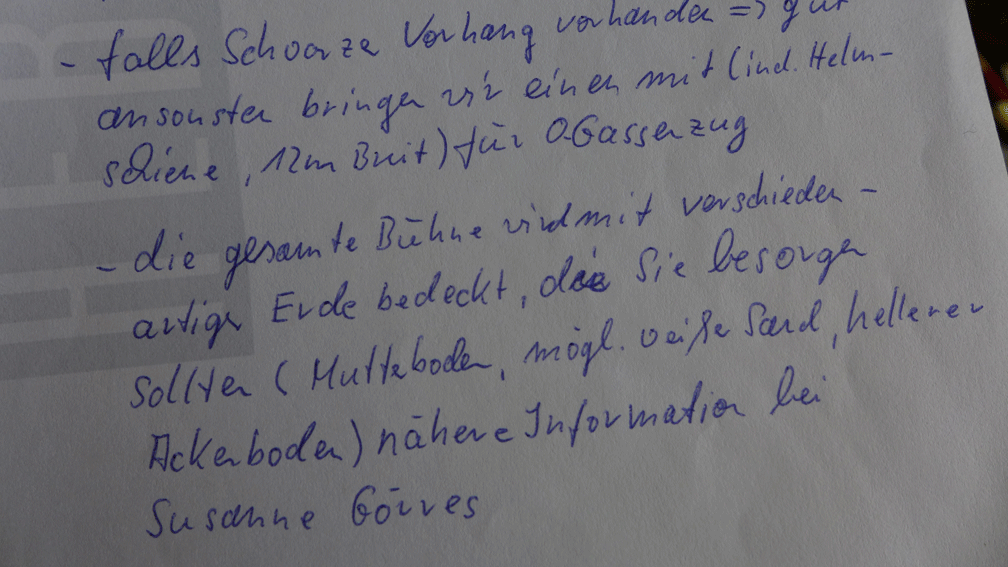 - falls Schwarze Vorhang vorhanden => gut
ansonsten bringen wir einen mit (incl. Helm-
schiene, 12m Breit) für O.Gassenzug
- die gesamte Bühne wird mit verschieden-
artiger Erde bedeckt, die Sie besorgen
sollten (Mutterboden, mögl. weißer Sand, hellerer
Ackerboden) nähere Information bei
Susanne Görres